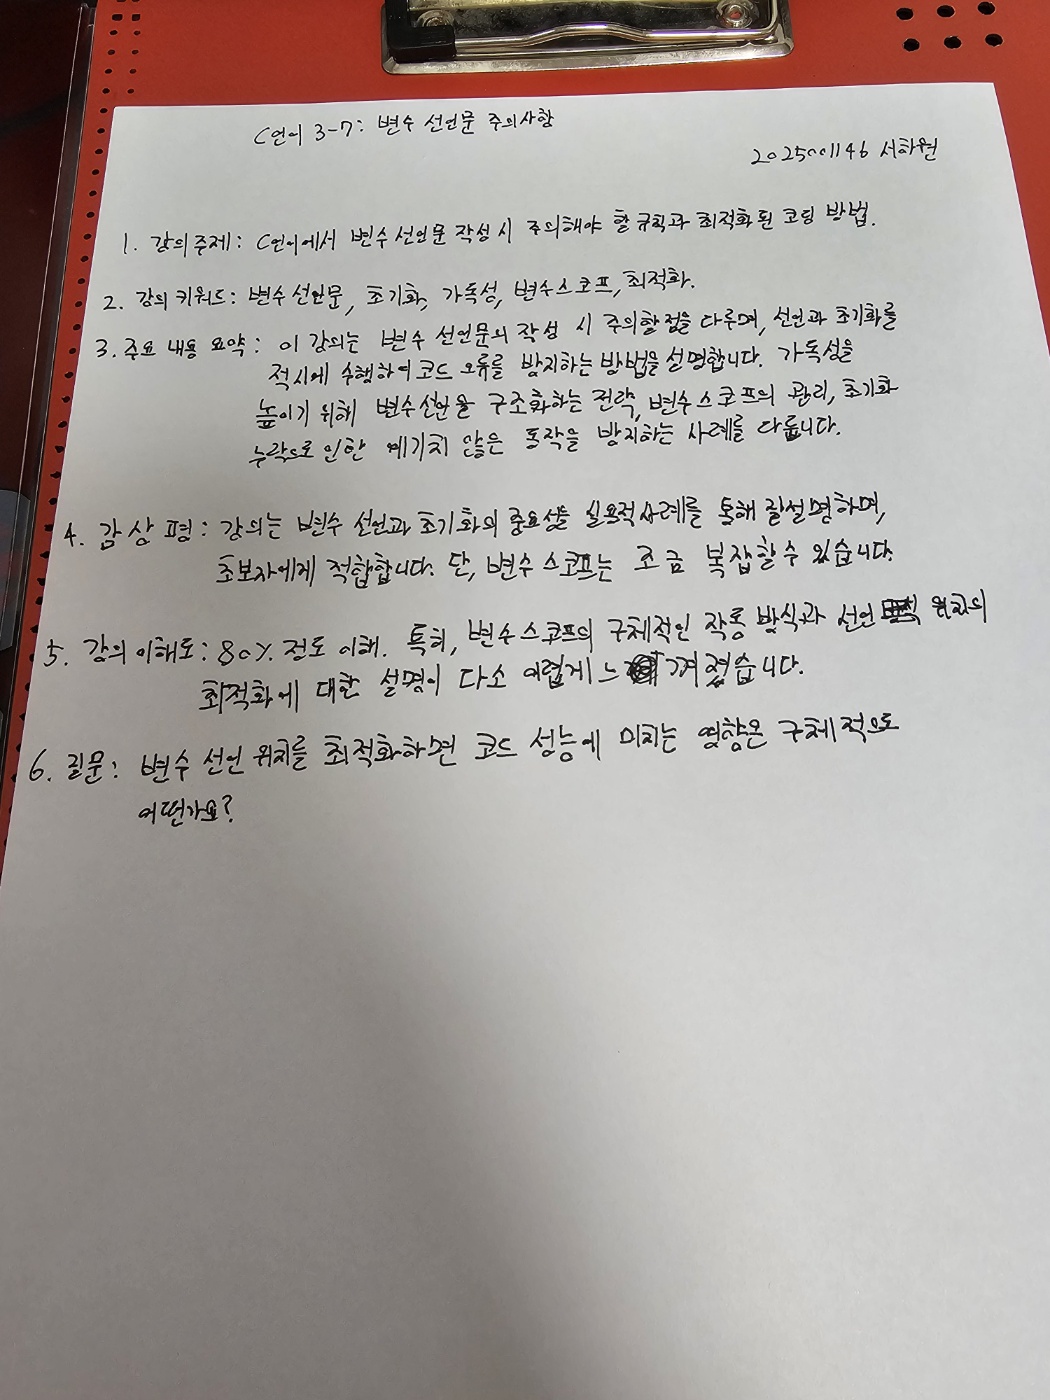 C언어 3-7: 변수 선언문 주의사항
2025001146 서하원
1. 강의주제: C언어에서 변수선언문 작성시 주의해야 할 규칙과 최적화된 코딩 방법.
2. 강의 키워드: 변수선언문, 초기화, 가독성, 변수스코프, 최적화.
3. 주요 내용 요약: 이 강의는 변수 선언문의 작성 시 주의할점을 다루며, 선언과 초기화를
적시에 수행하여 코드 오류를 방지하는 방법을 설명합니다. 가독성을
높이기 위해 변수선언을 구조화하는 전략, 변수스코프의 관리, 초기화
누락으로 인한 예기치 않은 동작을 방지하는 사례를 다룹니다.
4. 감상평: 강의는 변수 선언과 초기화의 중요성을 실용적사례를 통해 잘설명하며,
초보자에게 적합합니다. 단, 변수 스코프는 조금 복잡할수 있습니다.
5. 강의 이해도: 80% 정도 이해. 특히, 변수스코프의 구체적인 작동 방식과 선언 위치의
최적화에 대한 설명이 다소 어렵게 느껴졌습니다.
6. 질문: 변수 선언 위치를 최적화하면 코드 성능에 미치는 영향은 구체적으로
어떤가요?